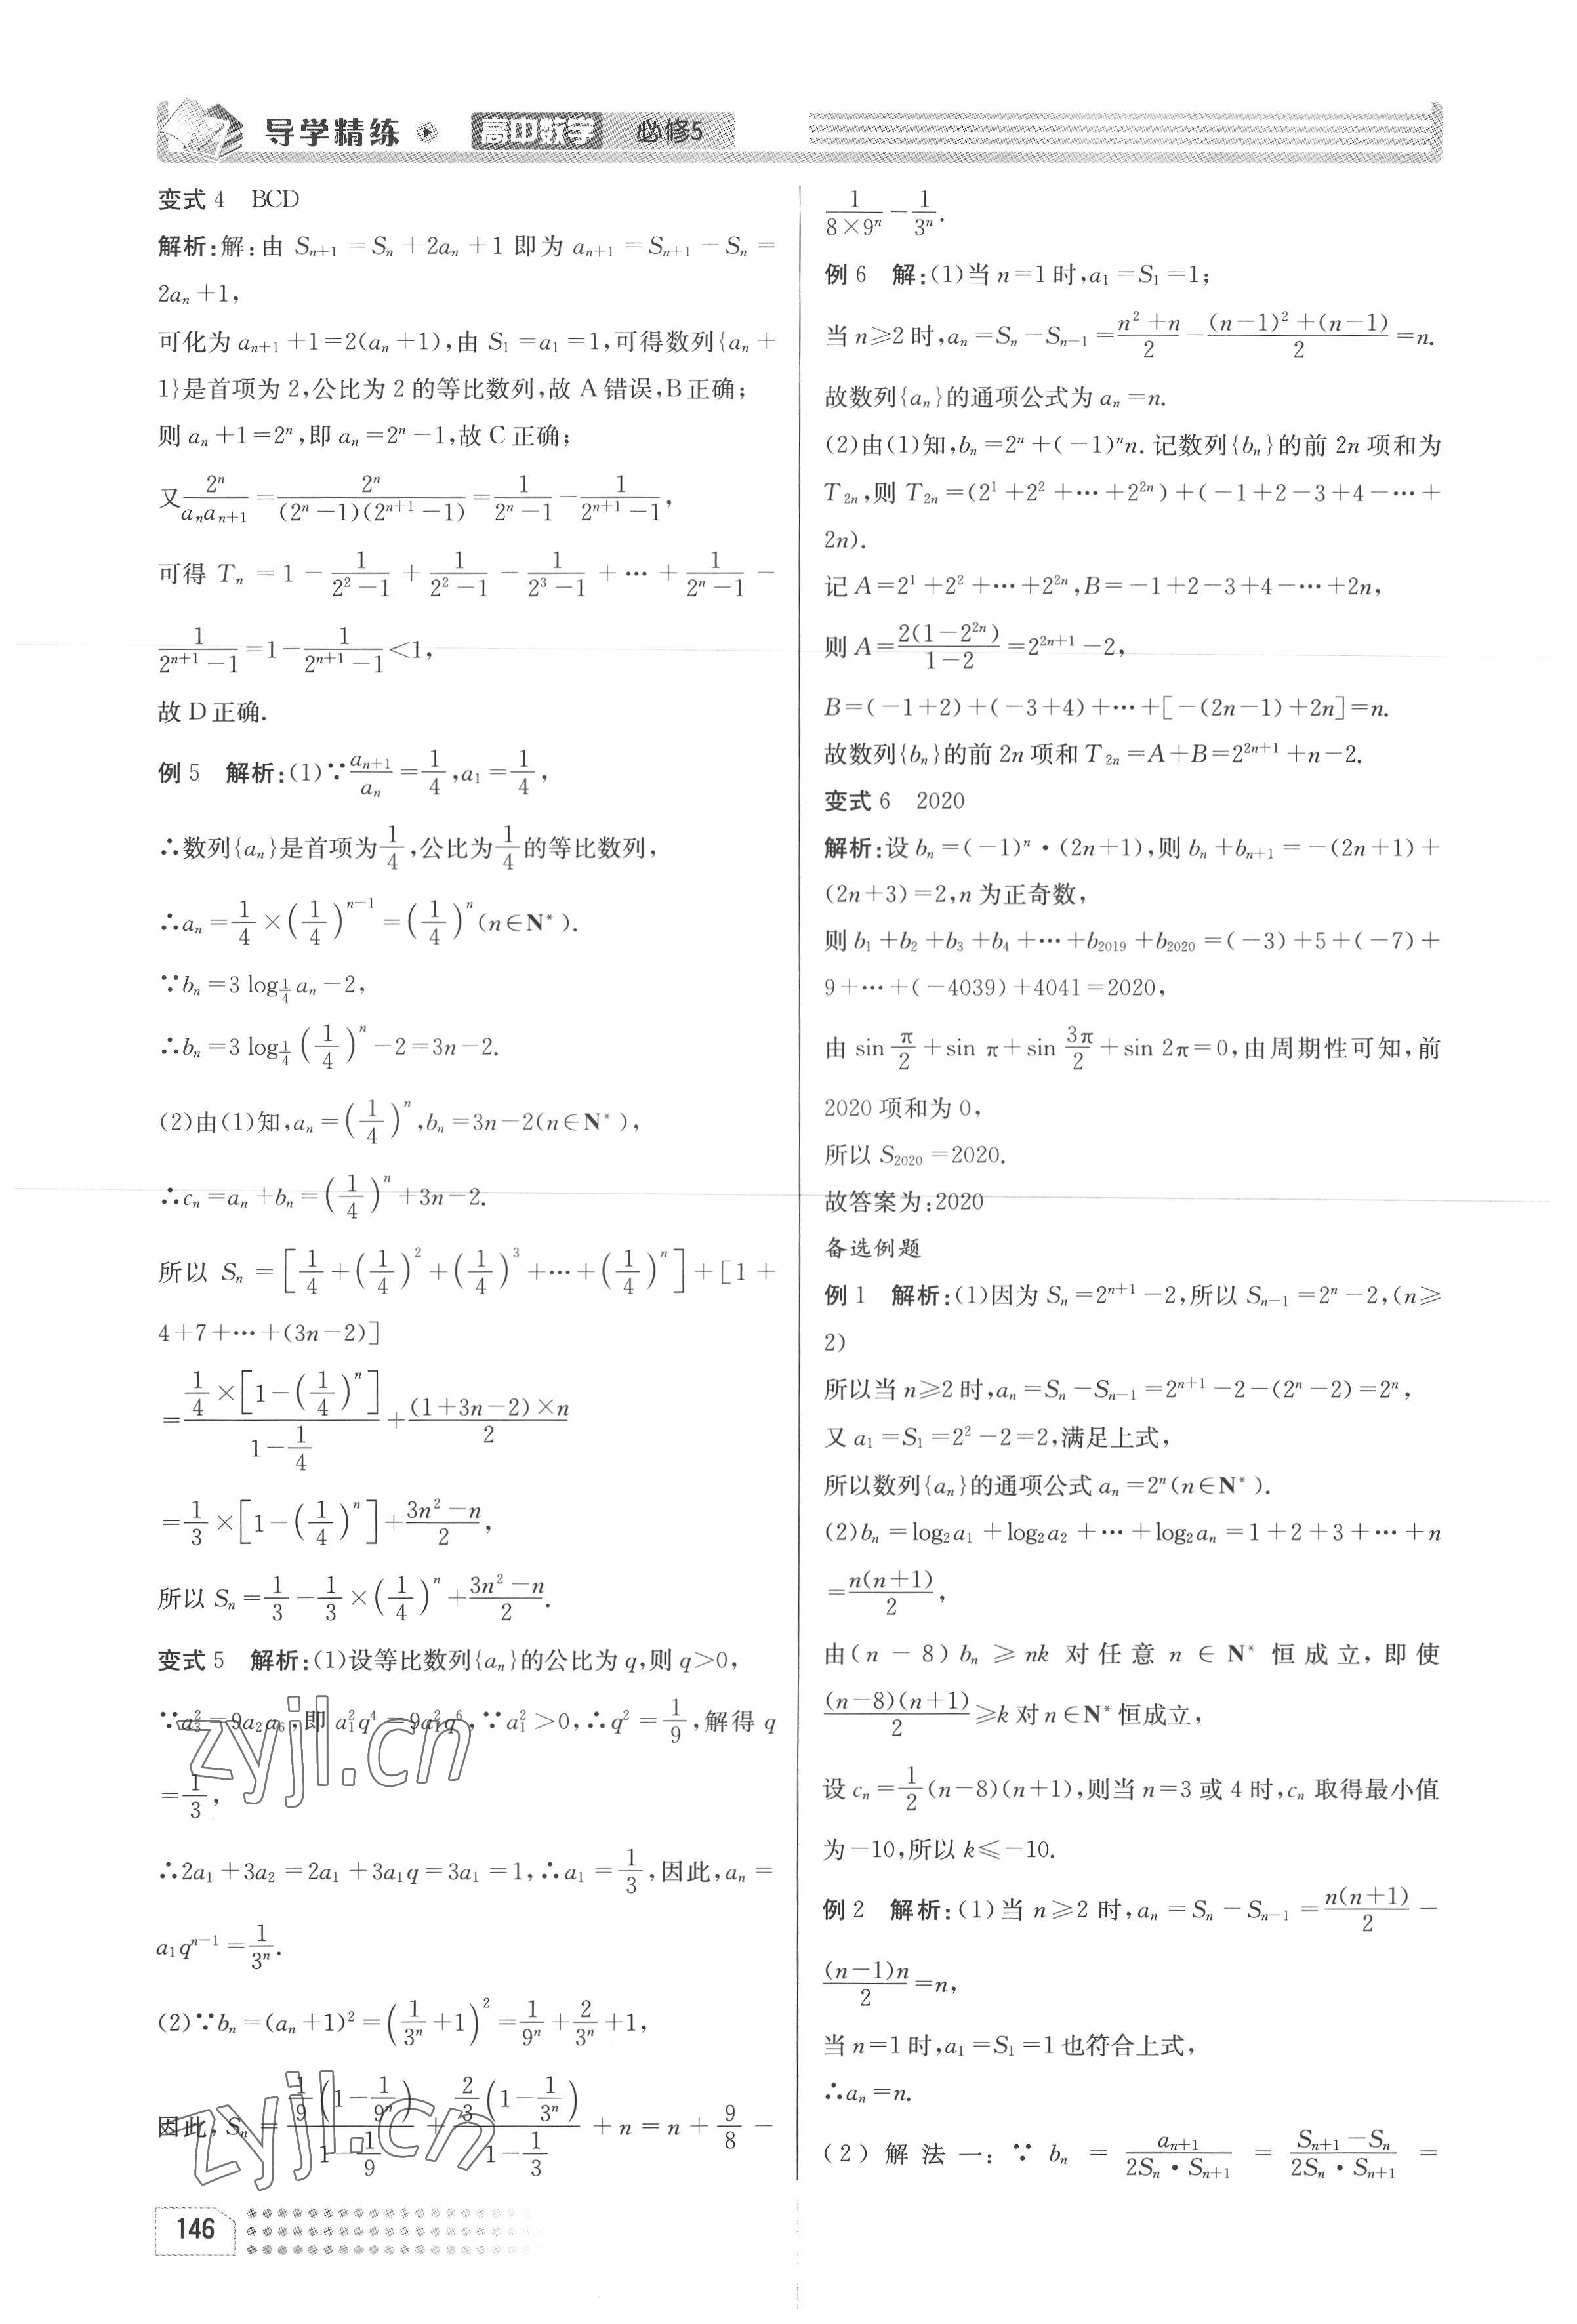 导学精练 高中数学 必修5
变式 4 BCD
解析:解:由 Sₙ₊₁ = Sₙ + 2aₙ + 1 即为 aₙ₊₁ = Sₙ₊₁ − Sₙ =
2aₙ + 1,
可化为 aₙ₊₁ + 1 = 2(aₙ + 1),由 S₁ = a₁ = 1,可得数列{aₙ +
1}是首项为 2,公比为 2 的等比数列,故 A 错误,B 正确;
则 aₙ + 1 = 2ⁿ,即 aₙ = 2ⁿ − 1,故 C 正确;
又 2ⁿ/(aₙaₙ₊₁) = 2ⁿ/((2ⁿ − 1)(2ⁿ⁺¹ − 1)) = 1/(2ⁿ − 1) − 1/(2ⁿ⁺¹ − 1),
可得 Tₙ = 1 − 1/(2² − 1) + 1/(2² − 1) − 1/(2³ − 1) + ⋯ + 1/(2ⁿ − 1) −
1/(2ⁿ⁺¹ − 1) = 1 − 1/(2ⁿ⁺¹ − 1) < 1,
故 D 正确.
例 5 解析:(1)∵ aₙ₊₁/aₙ = 1/4, a₁ = 1/4,
∴数列{aₙ}是首项为 1/4,公比为 1/4 的等比数列,
∴aₙ = 1/4 × (1/4)ⁿ⁻¹ = (1/4)ⁿ (n∈N*).
∵bₙ = 3 log_{1/4} aₙ − 2,
∴bₙ = 3 log_{1/4} (1/4)ⁿ − 2 = 3n − 2.
(2)由(1)知,aₙ = (1/4)ⁿ, bₙ = 3n − 2(n∈N*),
∴cₙ = aₙ + bₙ = (1/4)ⁿ + 3n − 2.
所以 Sₙ = [1/4 + (1/4)² + (1/4)³ + ⋯ + (1/4)ⁿ] + [1 +
4 + 7 + ⋯ + (3n − 2)]
= (1/4 × [1 − (1/4)ⁿ])/(1 − 1/4) + ((1 + 3n − 2) × n)/2
= 1/3 × [1 − (1/4)ⁿ] + (3n² − n)/2,
所以 Sₙ = 1/3 − 1/3 × (1/4)ⁿ + (3n² − n)/2.
变式 5 解析:(1)设等比数列{aₙ}的公比为 q,则 q>0,
∵a₃² = 9a₂a₆,即 a₁²q⁴ = 9a₁²q⁶,∵a₁² > 0,∴q² = 1/9,解得 q
= 1/3,
∴2a₁ + 3a₂ = 2a₁ + 3a₁q = 3a₁ = 1,∴a₁ = 1/3,因此,aₙ =
a₁qⁿ⁻¹ = 1/3ⁿ.
(2)∵bₙ = (aₙ + 1)² = (1/3ⁿ + 1)² = 1/9ⁿ + 2/3ⁿ + 1,
因此,Sₙ = (1/9(1 − 1/9ⁿ))/(1 − 1/9) + (2/3(1 − 1/3ⁿ))/(1 − 1/3) + n = n + 9/8 −
146
1/(8×9ⁿ) − 1/3ⁿ.
例 6 解:(1)当 n=1 时,a₁ = S₁ = 1;
当 n≥2 时,aₙ = Sₙ − Sₙ₋₁ = (n² + n)/2 − ((n−1)² + (n−1))/2 = n.
故数列{aₙ}的通项公式为 aₙ = n.
(2)由(1)知,bₙ = 2ⁿ + (−1)ⁿn. 记数列{bₙ}的前 2n 项和为
T₂ₙ,则 T₂ₙ = (2¹ + 2² + ⋯ + 2²ⁿ) + (−1 + 2 − 3 + 4 − ⋯ +
2n).
记 A = 2¹ + 2² + ⋯ + 2²ⁿ, B = −1 + 2 − 3 + 4 − ⋯ + 2n,
则 A = 2(1 − 2²ⁿ)/(1 − 2) = 2²ⁿ⁺¹ − 2,
B = (−1 + 2) + (−3 + 4) + ⋯ + [−(2n − 1) + 2n] = n.
故数列{bₙ}的前 2n 项和 T₂ₙ = A + B = 2²ⁿ⁺¹ + n − 2.
变式 6 2020
解析:设 bₙ = (−1)ⁿ • (2n + 1),则 bₙ + bₙ₊₁ = −(2n + 1) +
(2n + 3) = 2, n 为正奇数,
则 b₁ + b₂ + b₃ + b₄ + ⋯ + b₂₀₁₉ + b₂₀₂₀ = (−3) + 5 + (−7) +
9 + ⋯ + (−4039) + 4041 = 2020,
由 sin π/2 + sin π + sin 3π/2 + sin 2π = 0,由周期性可知,前
2020 项和为 0,
所以 S₂₀₂₀ = 2020.
故答案为:2020
备选例题
例 1 解析:(1)因为 Sₙ = 2ⁿ⁺¹ − 2,所以 Sₙ₋₁ = 2ⁿ − 2,(n≥
2)
所以当 n≥2 时,aₙ = Sₙ − Sₙ₋₁ = 2ⁿ⁺¹ − 2 − (2ⁿ − 2) = 2ⁿ,
又 a₁ = S₁ = 2² − 2 = 2,满足上式,
所以数列{aₙ}的通项公式 aₙ = 2ⁿ(n∈N*).
(2)bₙ = log₂a₁ + log₂a₂ + ⋯ + log₂aₙ = 1 + 2 + 3 + ⋯ + n
= n(n + 1)/2,
由(n − 8)bₙ ≥ nk 对任意 n∈N* 恒成立,即使
(n − 8)(n + 1)/2 ≥ k 对 n∈N* 恒成立,
设 cₙ = 1/2(n − 8)(n + 1),则当 n=3 或 4 时,cₙ 取得最小值
为−10,所以 k≤−10.
例 2 解析:(1)当 n≥2 时,aₙ = Sₙ − Sₙ₋₁ = n(n + 1)/2 −
(n − 1)n/2 = n,
当 n=1 时,a₁ = S₁ = 1 也符合上式,
∴aₙ = n.
(2)解法一:∵ bₙ = aₙ₊₁/(2Sₙ • Sₙ₊₁) = (Sₙ₊₁ − Sₙ)/(2Sₙ • Sₙ₊₁) =
zyjl.cn
zyjl.cn